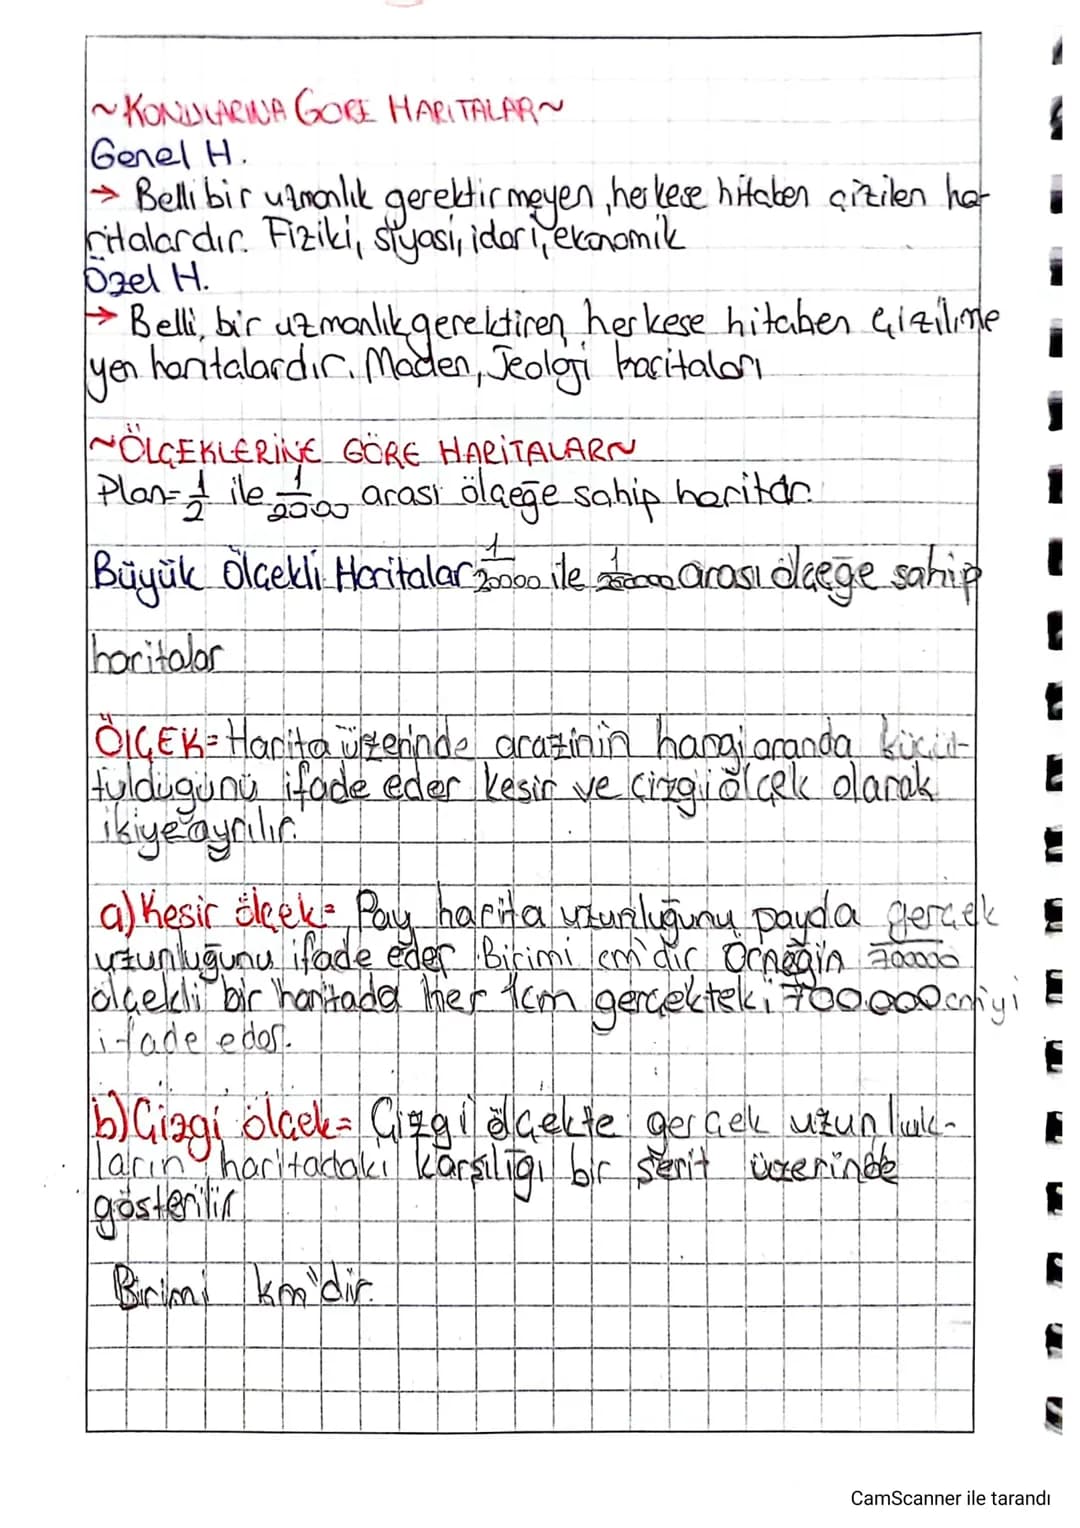 ~KONULARINA GÖRE HARİTALAR~
Genel H.
→ Belli bir uzmanlık gerektirmeyen, herkese hitaben çizilen ha-
ritalardır. Fiziki, siyasi, idari, ekonomik
Özel H.
→ Belli, bir uzmanlık gerektiren, herkese hitaben çizilme
yen haritalardır. Maden, Jeoloji haritaları
~ÖLÇEKLERİNE GÖRE HARİTALAR~
Plan= 1/2 ile arası ölçeğe sahip haritar.
Büyük Ölçekli Haritalar 1/20000 ile arası ölçeğe sahip
haritalar
ÖlÇEK= Harita üzerinde arazinin hangi oranda küçül-
tüldüğünü ifade eder kesir ve çizgi ölçek olarak
ikiye ayrılır.
a) Kesir ölçek= Pay harita uzunluğunu payda gerçek
uzunluğunu ifade eder. Birimi cm'dir Örneğin 700000
ölçekli bir haritada her 1cm gerçekteki 700.000 cm'yi
ifade eder.
b) Çizgi ölçek= Çizgi ölçekte gerçek uzunluk-
ların haritadaki karşılığı bir şerit üzerinde
gösterilir
Birimi km'dir.
CamScanner ile tarandı